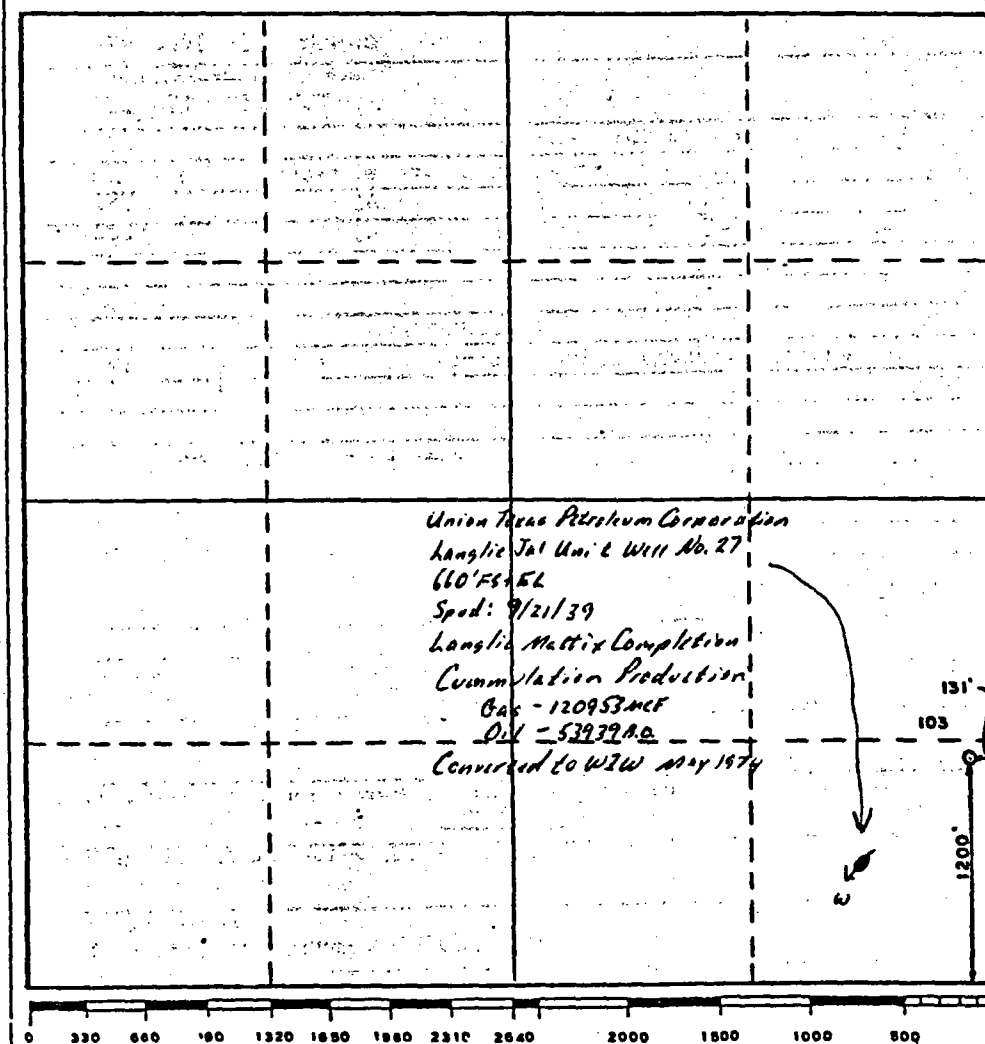 Union Texas Petroleum Corporation
Langlie Jal Unit Well No. 27
660' FS & EL
Spud: 9/21/39
Langlie Mattix Completion
Cummulation Production
Gas - 120953 MCF
Oil - 53939 B.O.
Converted to WIW May 1974
131'
103
1200'
W
0 330 660 990 1320 1650 1980 2310 2640 2000 1500 1000 500